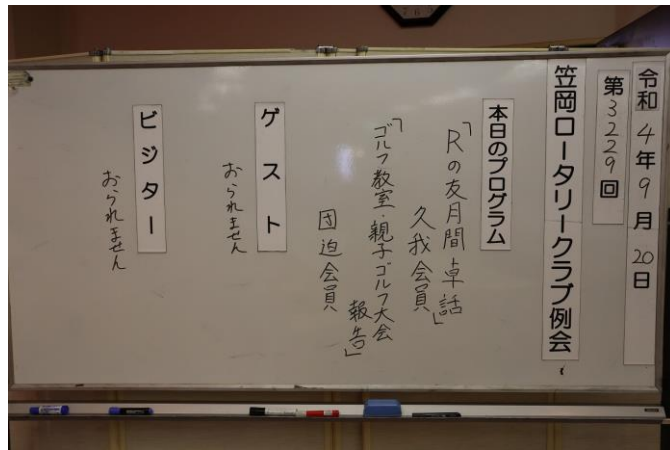 令和4年9月20日
第3229回
笠岡ロータリークラブ例会
本日のプログラム
「Rの友月間卓話」
久我会員
「ゴルフ教室・親子ゴルフ大会
報告」
団迫会員
ゲスト
おられません
ビジター
おられません